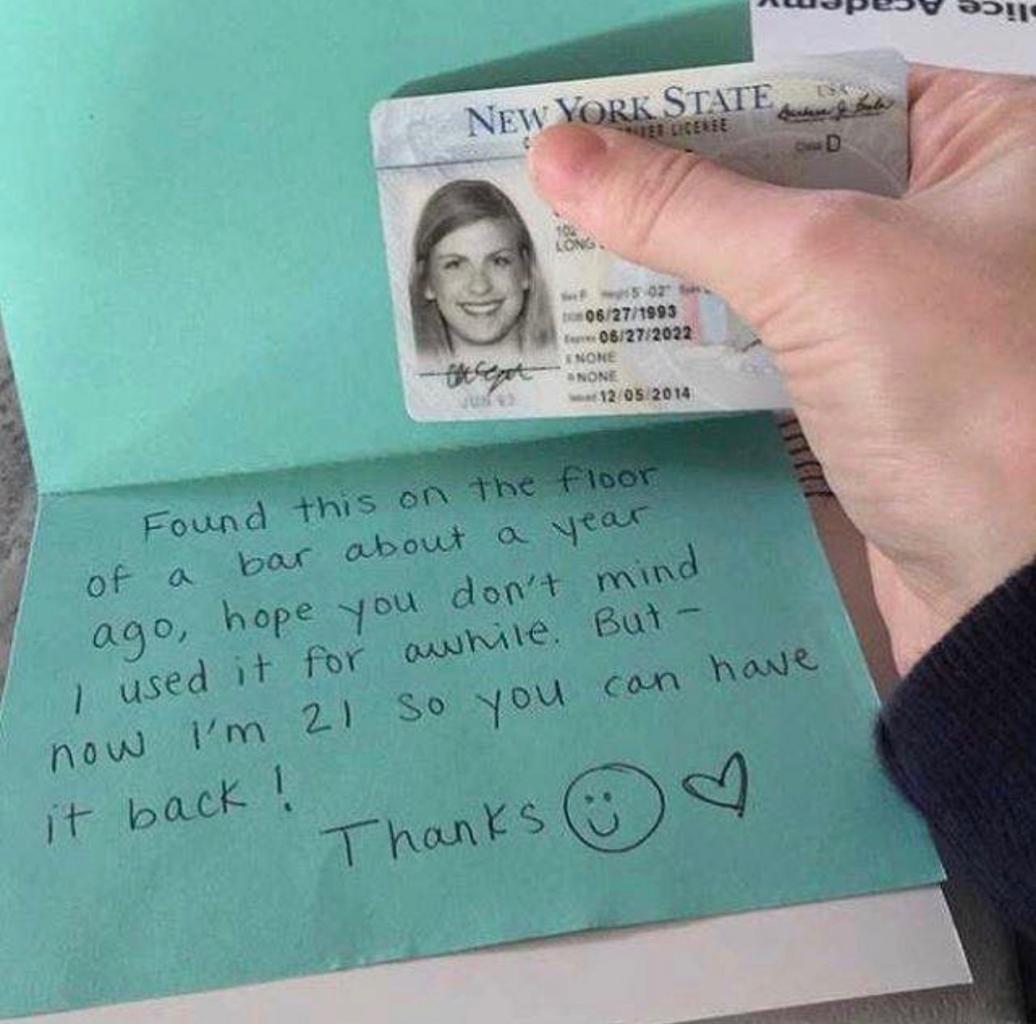 lice Academy
NEW YORK STATE
USA
LICENSE
Class D
102
LONG
Sex F Height 5'-02"
DOB 06/27/1993
Expires 06/27/2022
E NONE
R NONE
Issued 12/05/2014
JUN 93
Found this on the floor
of a bar about a year
ago, hope you don't mind
I used it for awhile. But -
now I'm 21 so you can have
it back!
Thanks